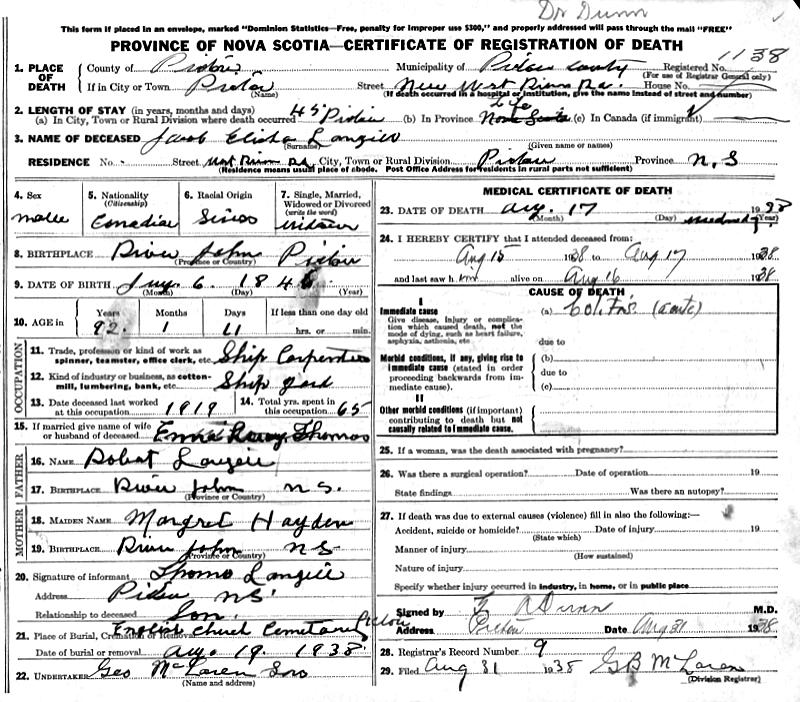 Dr Dunn
This form if placed in an envelope, marked "Dominion Statistics—Free, penalty for improper use $300," and properly addressed will pass through the mail "FREE"
PROVINCE OF NOVA SCOTIA—CERTIFICATE OF REGISTRATION OF DEATH
1. PLACE OF DEATH
County of Pictou Municipality of Pictou County Registered No. 1138
(For use of Registrar General only)
If in City or Town Pictou (Name) Street New West River Rd. House No.
(If death occurred in a hospital or institution, give the name instead of street and number)
2. LENGTH OF STAY (in years, months and days)
(a) In City, Town or Rural Division where death occurred 45 Pictou (b) In Province Life Nova Scotia (c) In Canada (if immigrant)
3. NAME OF DECEASED Jacob Elisha Langill
(Surname) (Given name or names)
RESIDENCE No. Street West River Rd, City, Town or Rural Division Pictou Province N.S
(Residence means usual place of abode. Post Office Address for residents in rural parts not sufficient)
4. Sex
male
5. Nationality (Citizenship)
Canadian
6. Racial Origin
7. Single, Married, Widowed or Divorced (write the word)
widower
8. BIRTHPLACE River John Pictou
(Province or Country)
9. DATE OF BIRTH July 6 1846
(Month) (Day) (Year)
10. AGE in Years 92 Months 1 Days 11 If less than one day old hrs. or min.
OCCUPATION
11. Trade, profession or kind of work as spinner, teamster, office clerk, etc. Ship Carpenter
12. Kind of industry or business, as cotton-mill, lumbering, bank, etc. Ship yard
13. Date deceased last worked at this occupation 1919 14. Total yrs. spent in this occupation 65
15. If married give name of wife or husband of deceased Emma Thomas
FATHER
16. NAME Robert Langill
17. BIRTHPLACE River John N.S.
(Province or Country)
MOTHER
18. MAIDEN NAME Margret Hayden
19. BIRTHPLACE River John NS
(Province or Country)
20. Signature of informant Thomas Langill
Address Pictou NS
Relationship to deceased Son
21. Place of Burial, Cremation or Removal English Church Cemetary Pictou
Date of burial or removal Aug. 19. 1938
22. UNDERTAKER Geo McLaren Sons
(Name and address)
MEDICAL CERTIFICATE OF DEATH
23. DATE OF DEATH Aug. 17 1938
(Month) (Day) (Year)
24. I HEREBY CERTIFY that I attended deceased from:
Aug 15 1938 to Aug 17 1938
and last saw h im alive on Aug 16 1938
CAUSE OF DEATH
I
Immediate cause
Give disease, injury or complication which caused death, not the mode of dying, such as heart failure, asphyxia, asthenia, etc.
(a) Colitis (acute)
due to
Morbid conditions, if any, giving rise to immediate cause (stated in order proceeding backwards from immediate cause).
(b)
due to
(c)
II
Other morbid conditions (if important) contributing to death but not causally related to immediate cause.
25. If a woman, was the death associated with pregnancy?
26. Was there a surgical operation? Date of operation 19
State findings Was there an autopsy?
27. If death was due to external causes (violence) fill in also the following:—
Accident, suicide or homicide? Date of injury 19
(State which)
Manner of injury
(How sustained)
Nature of injury
Specify whether injury occurred in industry, in home, or in public place
Signed by F A Dunn M.D.
Address Pictou Date Aug 31 1938
28. Registrar's Record Number 9
29. Filed Aug 31 1938 GB McLaren
(Division Registrar)